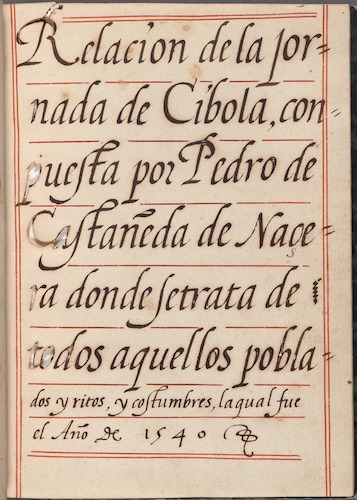 Relacion de la Jor-
nada de Cibola, con-
puesta por Pedro de
Castañeda de Naçe-
ra donde se trata de
todos aquellos pobla-
dos y ritos, y costumbres, la qual fue
el Año de 1540